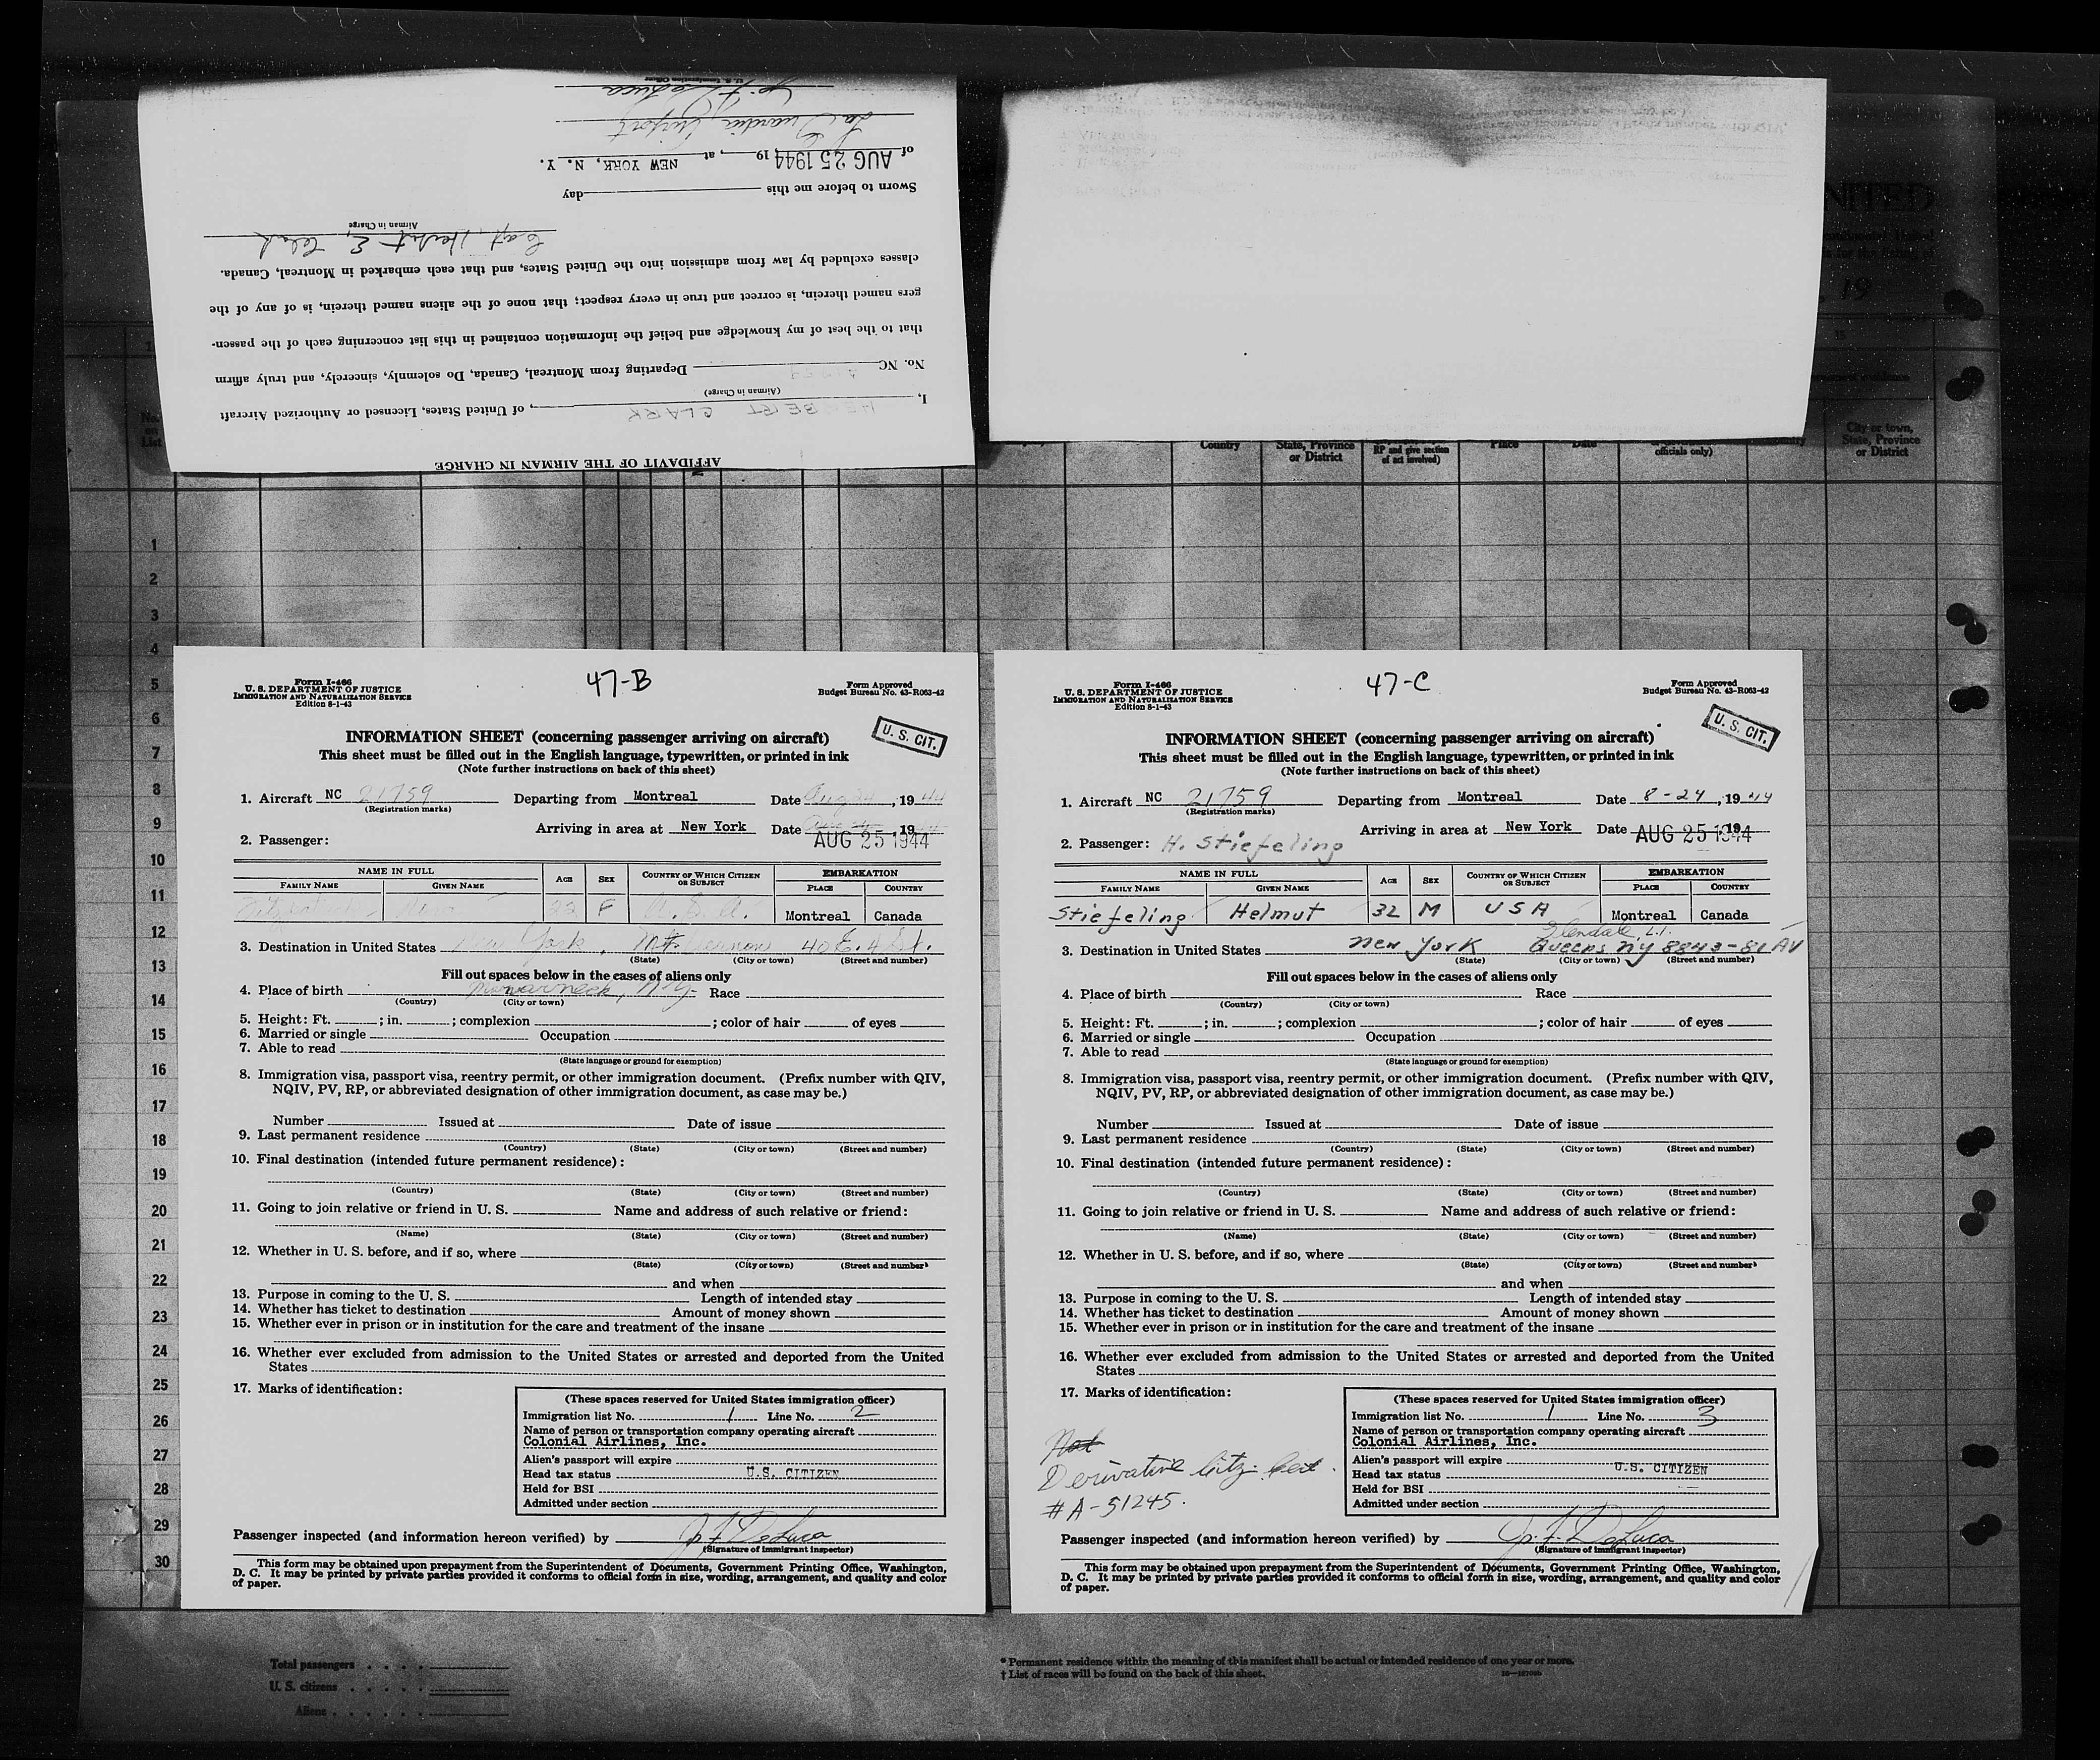 AFFIDAVIT OF THE AIRMAN IN CHARGE
I, HERBERT CLARK, of United States, Licensed or Authorized Aircraft
(Airman in Charge)
No. NC Departing from Montreal, Canada, Do solemnly, sincerely, and truly affirm
that to the best of my knowledge and belief the information contained in this list concerning each of the passen-
gers named therein, is correct and true in every respect; that none of the aliens named therein, is of any of the
classes excluded by law from admission into the United States, and that each embarked in Montreal, Canada.
Capt. Herbert E. Clark
Airman in Charge
Sworn to before me this day
of AUG 25 1944 19 , at NEW YORK, N. Y.
La Guardia Airport
U. S. Immigration Officer
NITED
, 19
15
No. on List
Country
State, Province or District
RP and give section of act involved)
Place
Date
officials only)
City or town, State, Province or District
1
2
3
4
5
6
7
8
9
10
11
12
13
14
15
16
17
18
19
20
21
22
23
24
25
26
27
28
29
30
Form I-466
U. S. DEPARTMENT OF JUSTICE
IMMIGRATION AND NATURALIZATION SERVICE
Edition 8-1-43
47-B
Form Approved
Budget Bureau No. 43-R063-42
U. S. CIT.
INFORMATION SHEET (concerning passenger arriving on aircraft)
This sheet must be filled out in the English language, typewritten, or printed in ink
(Note further instructions on back of this sheet)
1. Aircraft NC 21759 Departing from Montreal Date Aug 24, 19 44
(Registration marks)
Arriving in area at New York Date , 19
AUG 25 1944
2. Passenger:
NAME IN FULL AGE SEX COUNTRY OF WHICH CITIZEN OR SUBJECT EMBARKATION
FAMILY NAME GIVEN NAME PLACE COUNTRY
22 F U. S. A. Montreal Canada
3. Destination in United States New York, Mt. Vernon 40 E. 4 St.
(State) (City or town) (Street and number)
Fill out spaces below in the cases of aliens only
4. Place of birth N.Y. Race
(Country) (City or town)
5. Height: Ft. ; in. ; complexion ; color of hair of eyes
6. Married or single Occupation
7. Able to read
(State language or ground for exemption)
8. Immigration visa, passport visa, reentry permit, or other immigration document. (Prefix number with QIV,
NQIV, PV, RP, or abbreviated designation of other immigration document, as case may be.)
Number Issued at Date of issue
9. Last permanent residence
(Country) (State) (City or town) (Street and number)
10. Final destination (intended future permanent residence):
(Country) (State) (City or town) (Street and number)
11. Going to join relative or friend in U. S. Name and address of such relative or friend:
(Name) (State) (City or town) (Street and number)
12. Whether in U. S. before, and if so, where
(State) (City or town) (Street and number)
and when
13. Purpose in coming to the U. S. Length of intended stay
14. Whether has ticket to destination Amount of money shown
15. Whether ever in prison or in institution for the care and treatment of the insane
16. Whether ever excluded from admission to the United States or arrested and deported from the United
States
17. Marks of identification:
(These spaces reserved for United States immigration officer)
Immigration list No. 1 Line No. 2
Name of person or transportation company operating aircraft
Colonial Airlines, Inc.
Alien's passport will expire
Head tax status U.S. CITIZEN
Held for BSI
Admitted under section
Passenger inspected (and information hereon verified) by Jos. F. DeLuca
(Signature of immigrant inspector)
This form may be obtained upon prepayment from the Superintendent of Documents, Government Printing Office, Washington,
D. C. It may be printed by private parties provided it conforms to official form in size, wording, arrangement, and quality and color
of paper.
Form I-466
U. S. DEPARTMENT OF JUSTICE
IMMIGRATION AND NATURALIZATION SERVICE
Edition 8-1-43
47-C
Form Approved
Budget Bureau No. 43-R063-42
U. S. CIT.
INFORMATION SHEET (concerning passenger arriving on aircraft)
This sheet must be filled out in the English language, typewritten, or printed in ink
(Note further instructions on back of this sheet)
1. Aircraft NC 21759 Departing from Montreal Date 8-24, 19 44
(Registration marks)
Arriving in area at New York Date AUG 25 1944 , 19
2. Passenger: H. Stiefeling
NAME IN FULL AGE SEX COUNTRY OF WHICH CITIZEN OR SUBJECT EMBARKATION
FAMILY NAME GIVEN NAME PLACE COUNTRY
Stiefeling Helmut 32 M USA Montreal Canada
Glendale L.I.
3. Destination in United States New York Queens NY 8843-81 AV
(State) (City or town) (Street and number)
Fill out spaces below in the cases of aliens only
4. Place of birth Race
(Country) (City or town)
5. Height: Ft. ; in. ; complexion ; color of hair of eyes
6. Married or single Occupation
7. Able to read
(State language or ground for exemption)
8. Immigration visa, passport visa, reentry permit, or other immigration document. (Prefix number with QIV,
NQIV, PV, RP, or abbreviated designation of other immigration document, as case may be.)
Number Issued at Date of issue
9. Last permanent residence
(Country) (State) (City or town) (Street and number)
10. Final destination (intended future permanent residence):
(Country) (State) (City or town) (Street and number)
11. Going to join relative or friend in U. S. Name and address of such relative or friend:
(Name) (State) (City or town) (Street and number)
12. Whether in U. S. before, and if so, where
(State) (City or town) (Street and number)
and when
13. Purpose in coming to the U. S. Length of intended stay
14. Whether has ticket to destination Amount of money shown
15. Whether ever in prison or in institution for the care and treatment of the insane
16. Whether ever excluded from admission to the United States or arrested and deported from the United
States
17. Marks of identification:
Nat
Derivative Citz. Cert.
#A-51245.
(These spaces reserved for United States immigration officer)
Immigration list No. 1 Line No. 3
Name of person or transportation company operating aircraft
Colonial Airlines, Inc.
Alien's passport will expire
Head tax status U.S. CITIZEN
Held for BSI
Admitted under section
Passenger inspected (and information hereon verified) by Jos. F. DeLuca
(Signature of immigrant inspector)
This form may be obtained upon prepayment from the Superintendent of Documents, Government Printing Office, Washington,
D. C. It may be printed by private parties provided it conforms to official form in size, wording, arrangement, and quality and color
of paper.
Total passengers
U. S. citizens
Aliens
* Permanent residence within the meaning of this manifest shall be actual or intended residence of one year or more.
† List of races will be found on the back of this sheet.